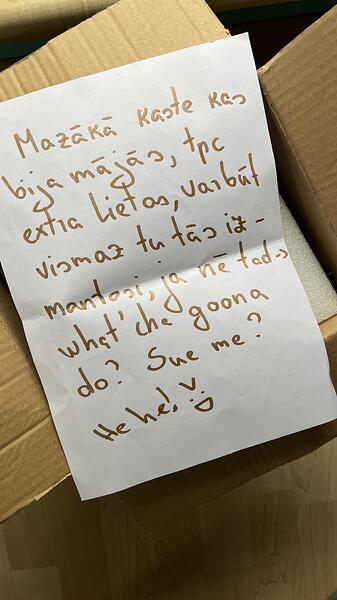 Mazākā kaste kas
bija mājās, tpc
extra lietas, varbūt
vismaz tu tās iz-
mantosi, ja nē tad->
what' cha goona
do? Sue me?
He he! :D